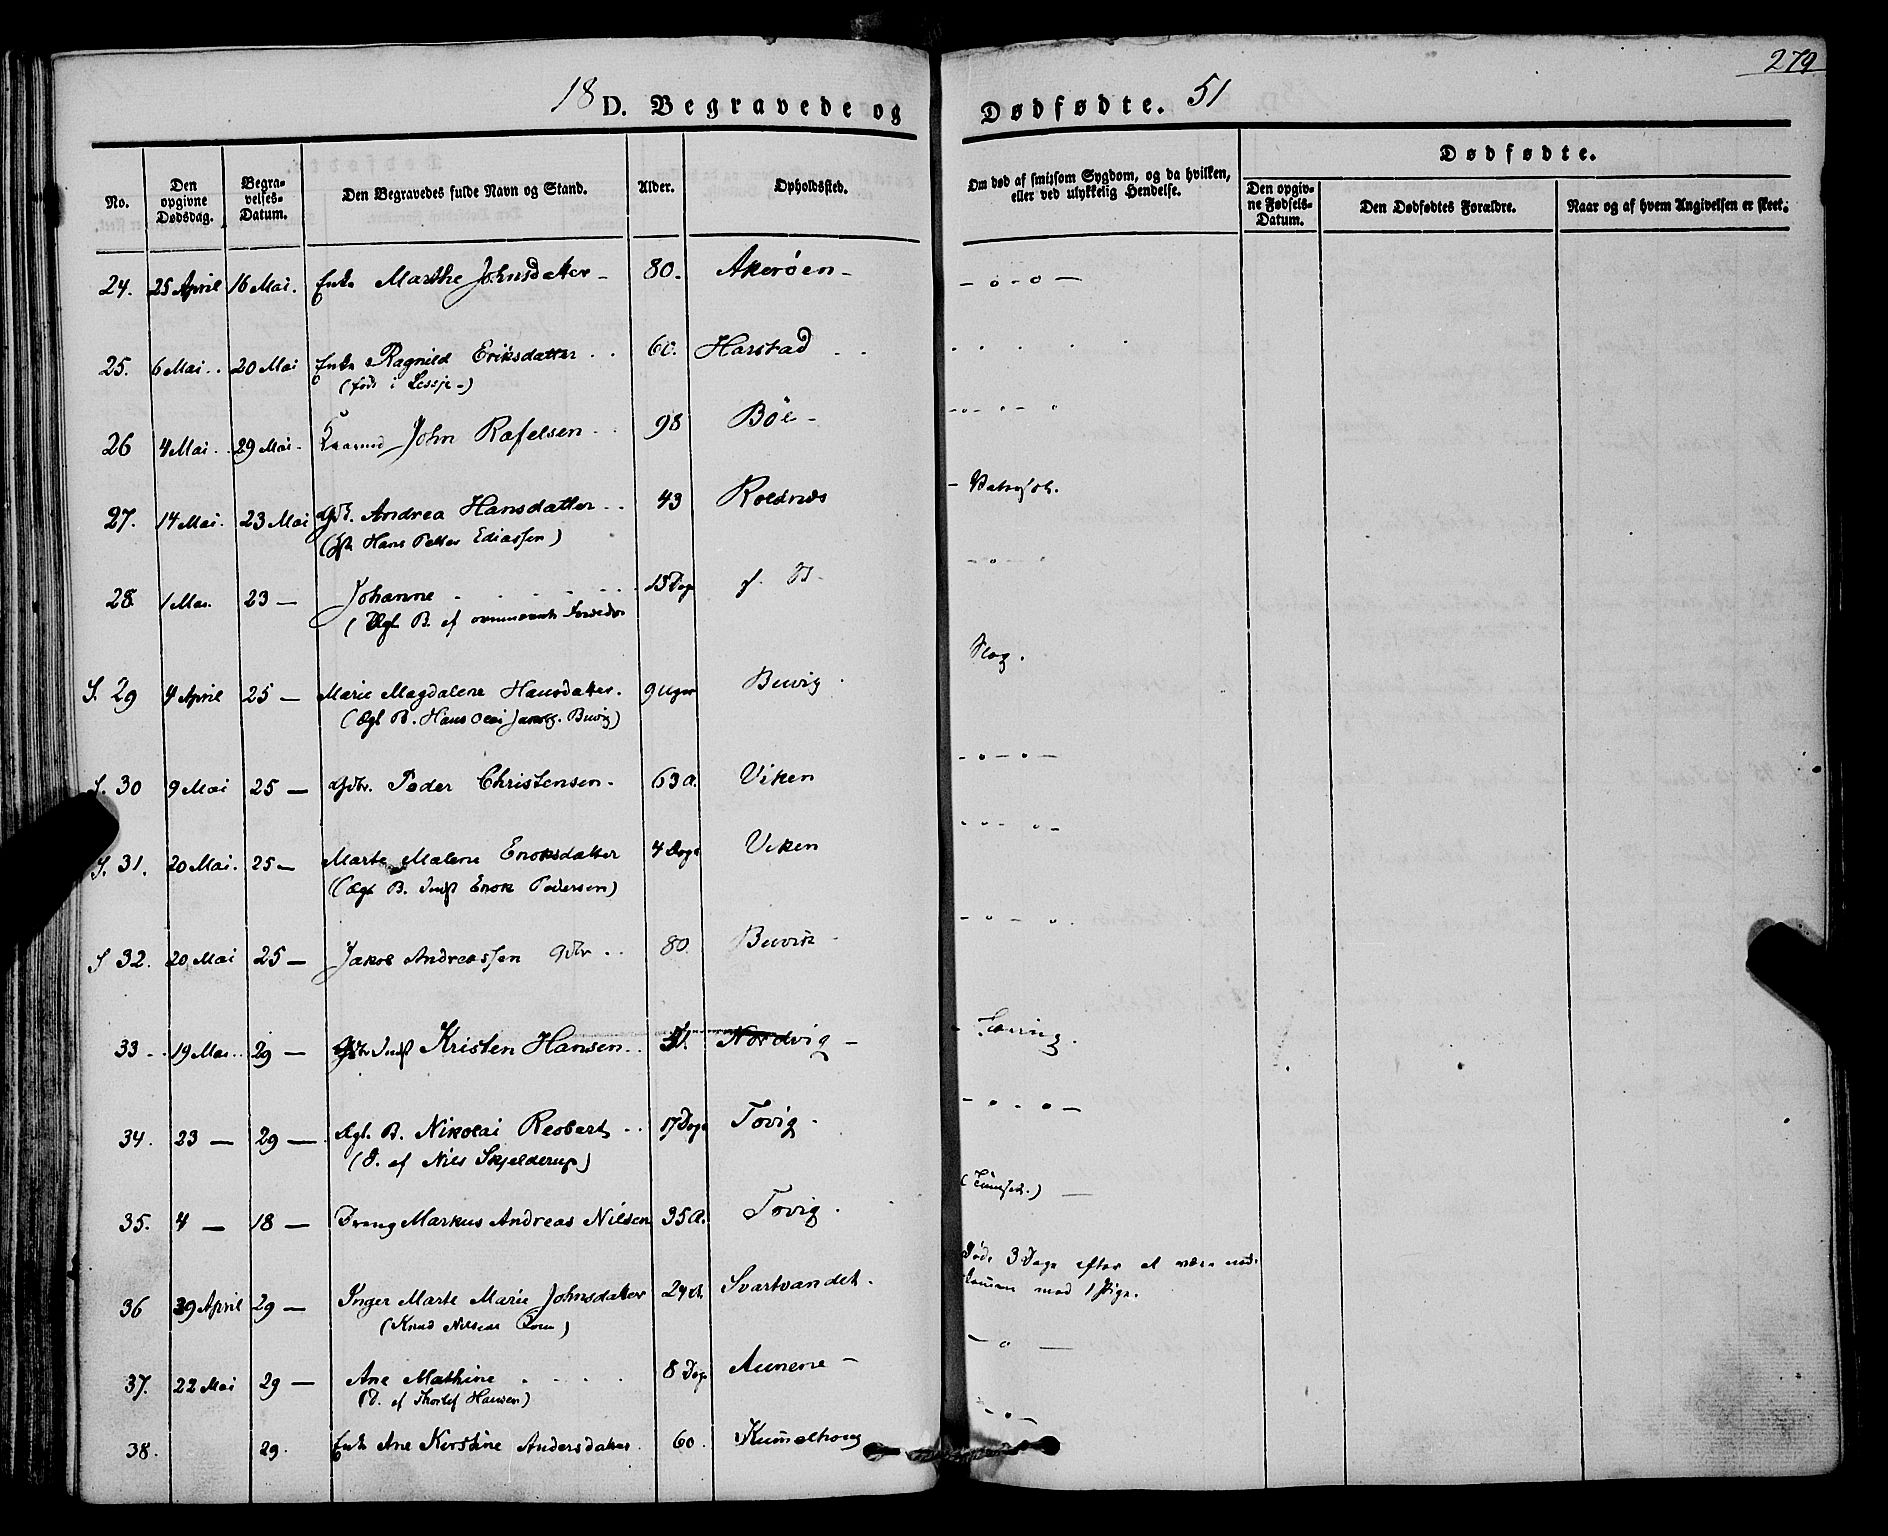 279
18 D. Begravede og Dødfødte. 51
No.
Den opgivne Dødsdag.
Begravelses-Datum.
Den Begravedes fulde Navn og Stand.
Alder.
Opholdssted.
Om død af smitsom Sygdom, og da hvilken, eller ved ulykkelig Hendelse.
Dødfødte.
Den opgivne Fødsels-Datum.
Den Dødfødtes Forældre.
Naar og af hvem Angivelsen er skeet.
24. 25 April 16 Mai. Enke Marthe Johnsdatter - 80. Akerøen - - o - o -
25. 6 Mai .. 20 Mai Enke Ragnild Eriksdatter .. 60. Harstad
(født i Lessje -)
26 4 Mai .. 29 Mai - John Rafelsen - 98 Böe -
27. 14 Mai. 23 Mai Andrea Hansdatter .. 43 Roldnæs
(Hans Petter Ediassen)
28. 1 Mai. 23 — Johanne 15 Dage
(Ægt B. af
S. 29 4 April 25 — Marie Magdalene Hansdatter. 9 Uger Buvig Slag.
(Ægt B. Hans Buvig)
S. 30 9 Mai 25 — Gdbr. Peder Christensen - 63 A. Viken
S. 31. 20 Mai. 25 — Marte Malene Enoksdatter 4 Dage Viken
(Ægt B. Indst Enok Pedersen)
S 32. 20 Mai 25 — Jakob Andreassen Gdbr .. 80. Buvik
33 - 19 Mai .. 29 — Indst Kristen Hansen .. Nordvig -
34. 23 — 29 — Ægt. B. Nikolai Reobert .. 17 Dage Tovig -
(S. af Nils Skjelderup)
35. 4 — 18 — Dreng Markus Andreas Nilsen 35 A. Tovig.
36 29 April 29 — Inger Marte Marie Johnsdatter 24 A. Svartvandet. Døde 3 Dage efter at være ned-
kommen med 1 Pige.
(Knud Nilsens Kone)
37. 22 Mai 29 — Ane Mathine 8 Dage Aunene -
(D. af Thorlef Hansen)
38. 29. Enke Ane Kerstine Andersdatter 60. Kumelhoug